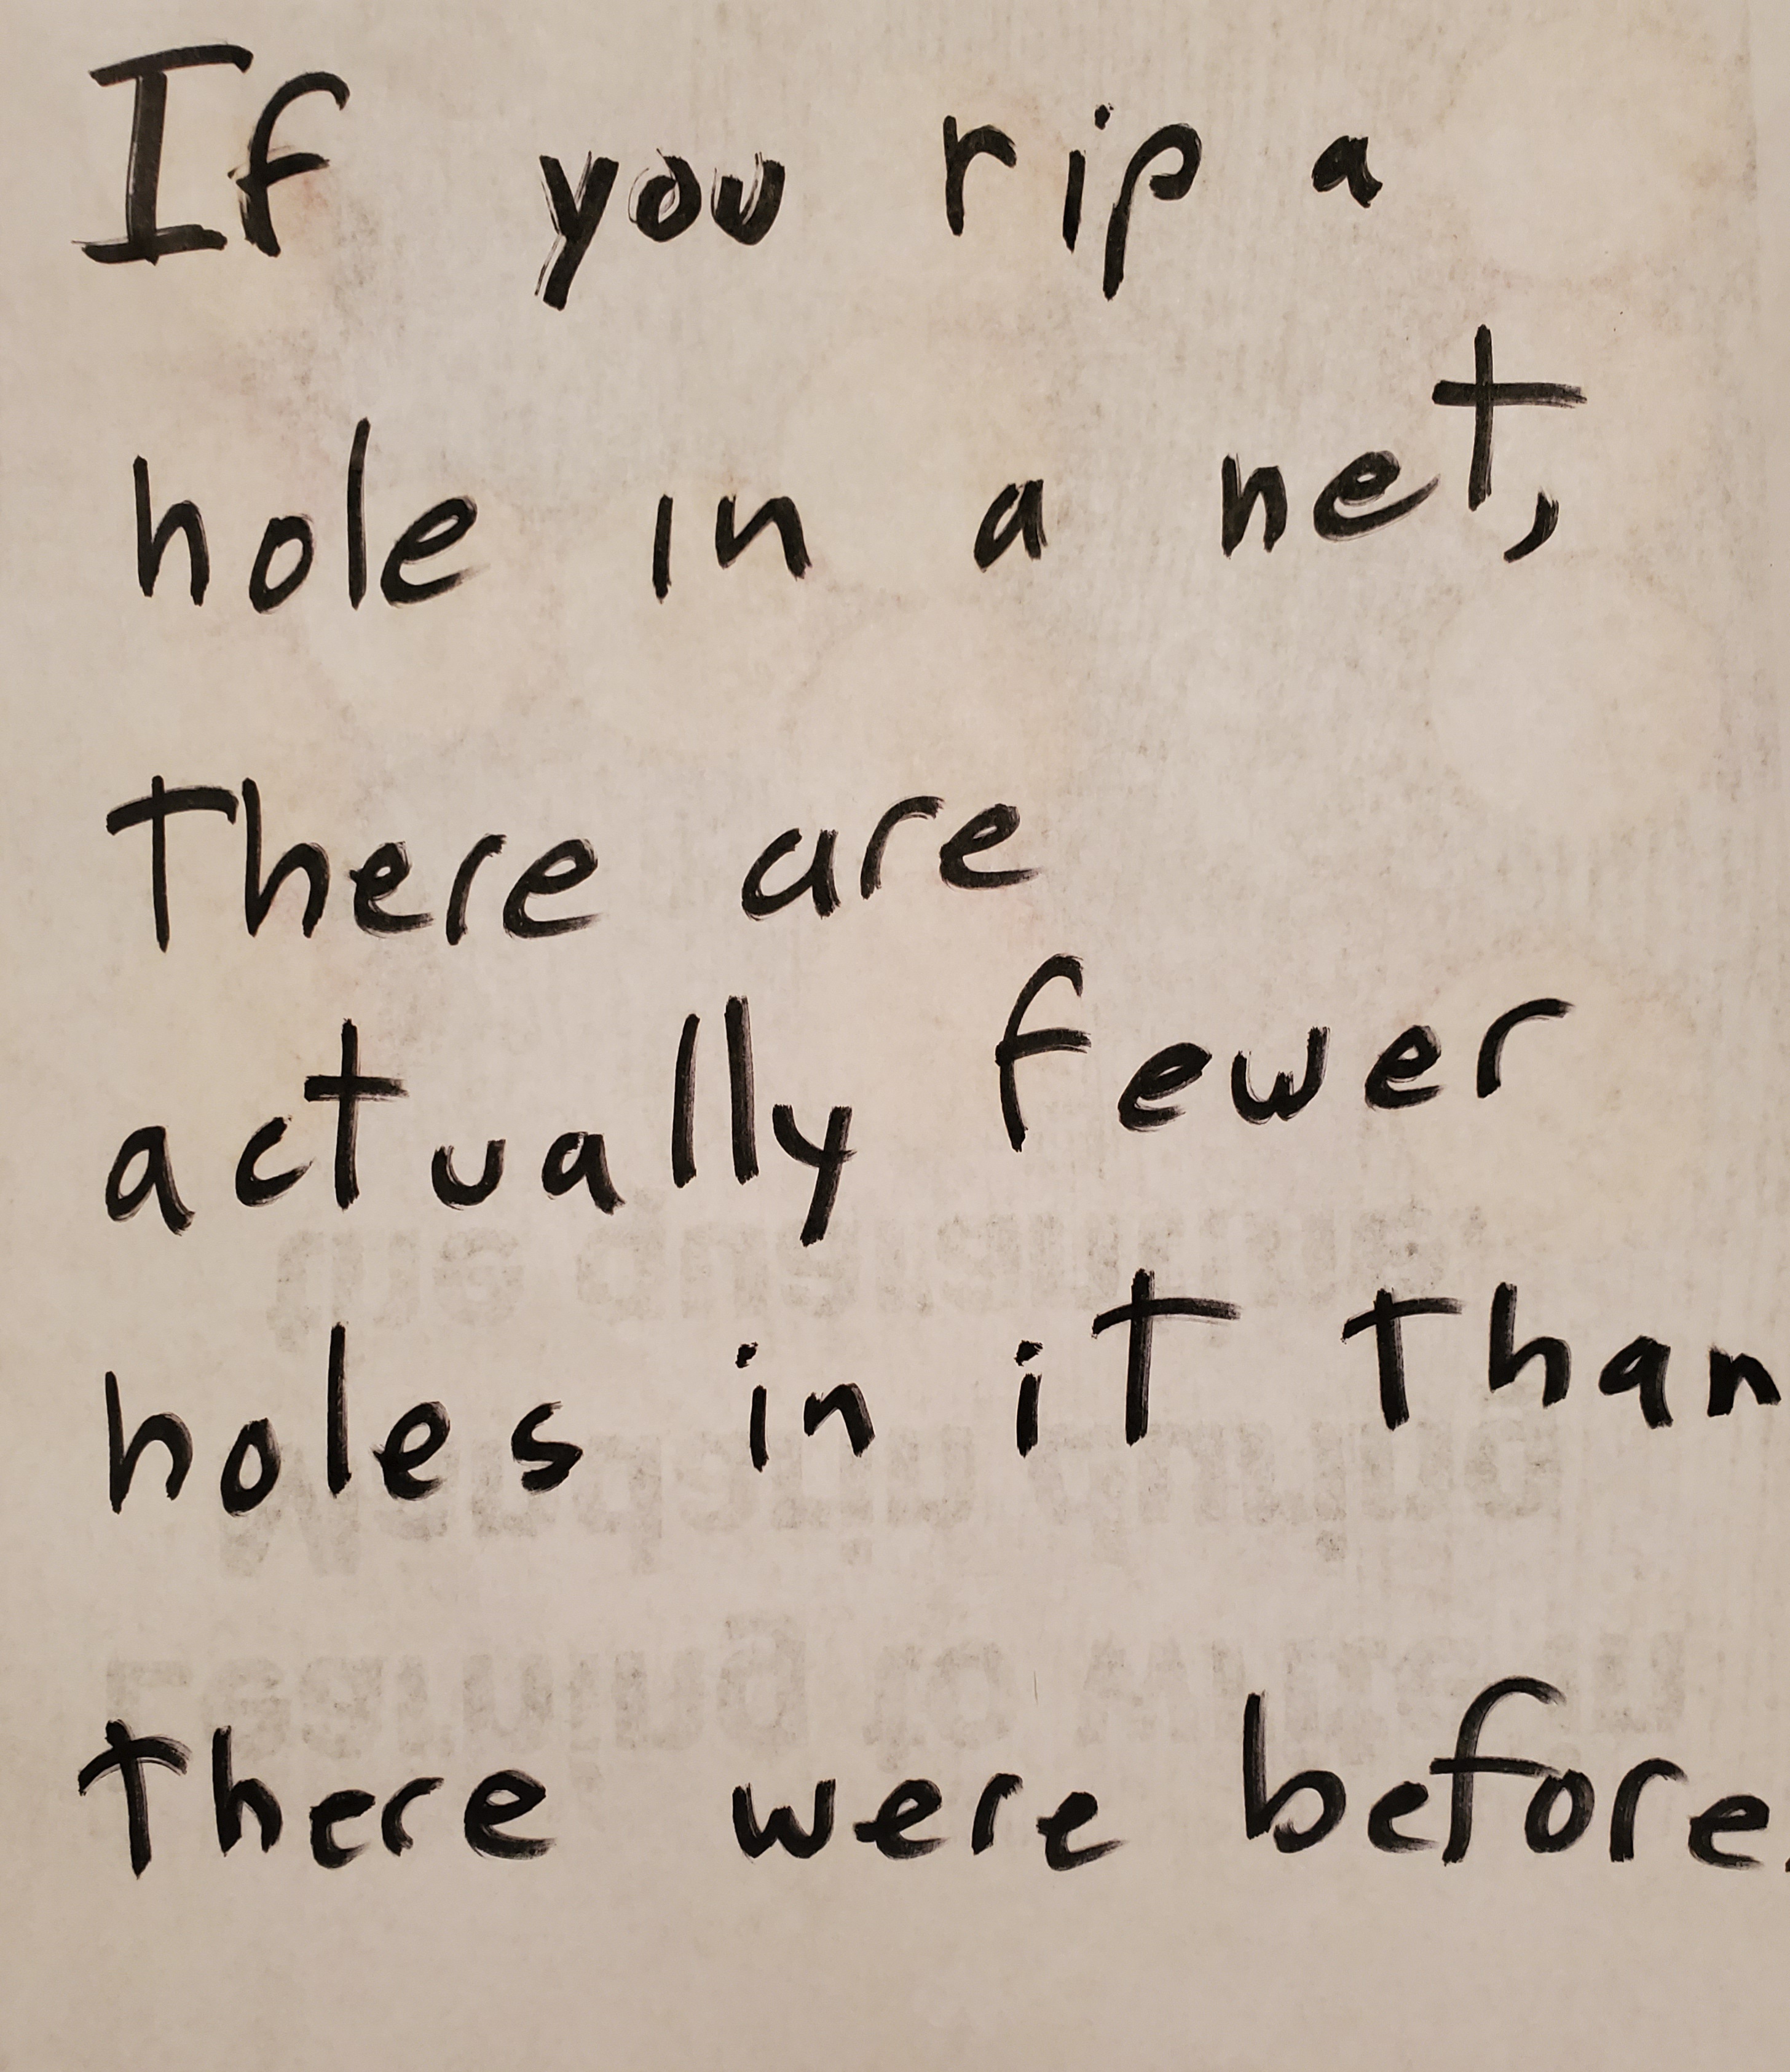 If you rip a
hole in a net,
There are
actually fewer
holes in it than
there were before.